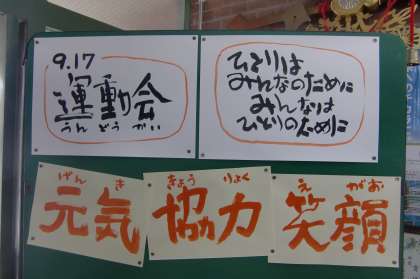 9.17
運動会
うんどうかい
ひとりは
みんなのために
みんなは
ひとりのために
げんき
元気
きょうりょく
協力
えがお
笑顔